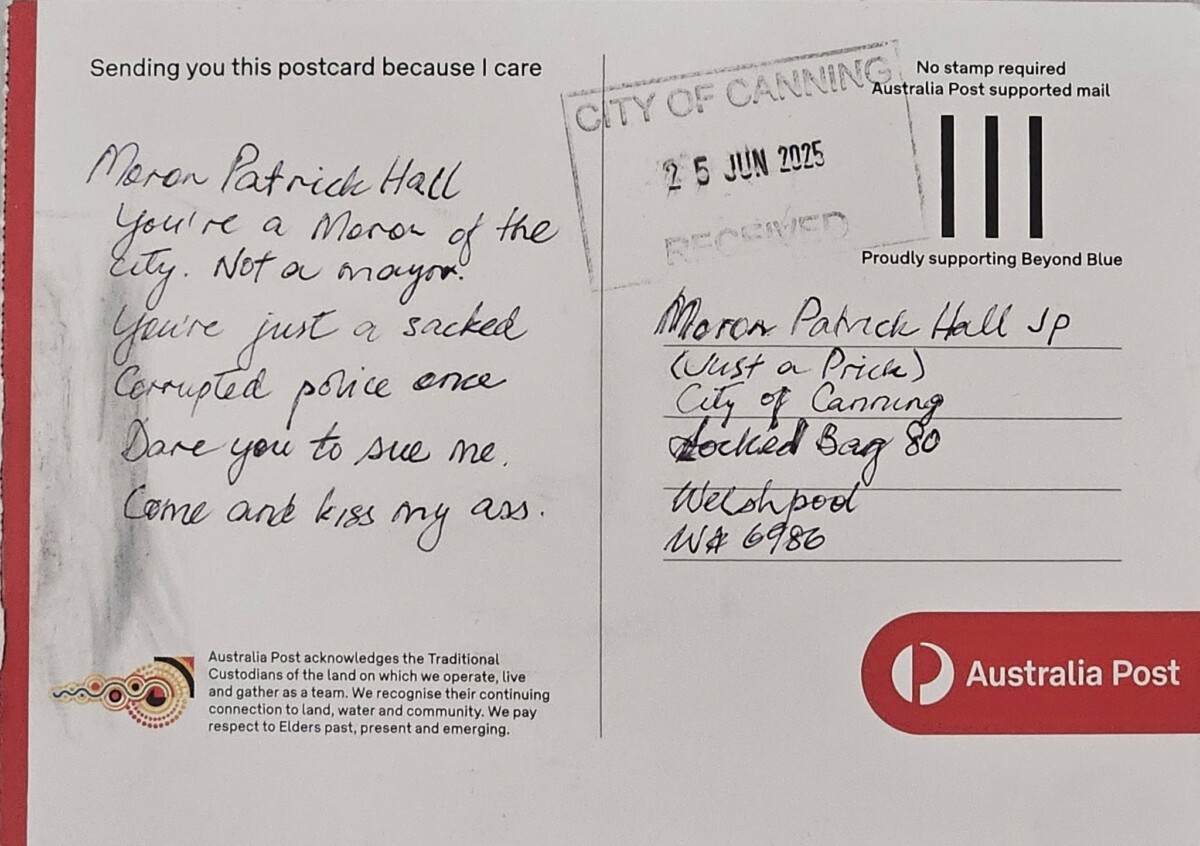 Sending you this postcard because I care
Moron Patrick Hall
You're a Moron of the
city. Not a mayor.
You're just a sacked
Corrupted police once
Dare you to sue me.
Come and kiss my ass.
Australia Post acknowledges the Traditional
Custodians of the land on which we operate, live
and gather as a team. We recognise their continuing
connection to land, water and community. We pay
respect to Elders past, present and emerging.
CITY OF CANNING
25 JUN 2025
RECEIVED
No stamp required
Australia Post supported mail
Proudly supporting Beyond Blue
Moron Patrick Hall JP
(Just a Prick)
City of Canning
Locked Bag 80
Welshpool
WA 6986
Australia Post